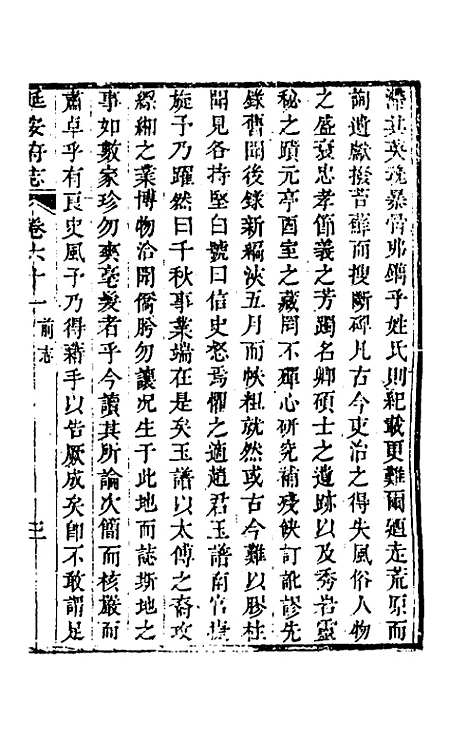 其英魂暴骨弗鐫乎姓氏則紀載更難爾廼走荒原而
詢遺獻撥苔蘚而搜斷碑凡古今吏治之得失風俗人物
之盛衰忠孝節義之芳躅名卿碩士之遺跡以及秀岩靈
秘之蹟元亭酉室之藏罔不殫心研究補殘缺訂訛謬先
錄舊聞後錄新編浹五月而帙粗就然或古今難以膠柱
聞見各持堅白號曰信史怒焉懼之適趙君玉譜制官捷
旋予乃躍然曰千秋事業端在是矣玉譜以太傅之裔攻
經細之業博物洽聞僑肸勿讓况生于此地而誌斯地之
事如數家珍勿爽毫髮者乎今讀其所論次簡而核嚴而
肅卓乎有良史風予乃得藉手以告厥成矣即不敢謂足
延安府志 卷六十一 前志 三